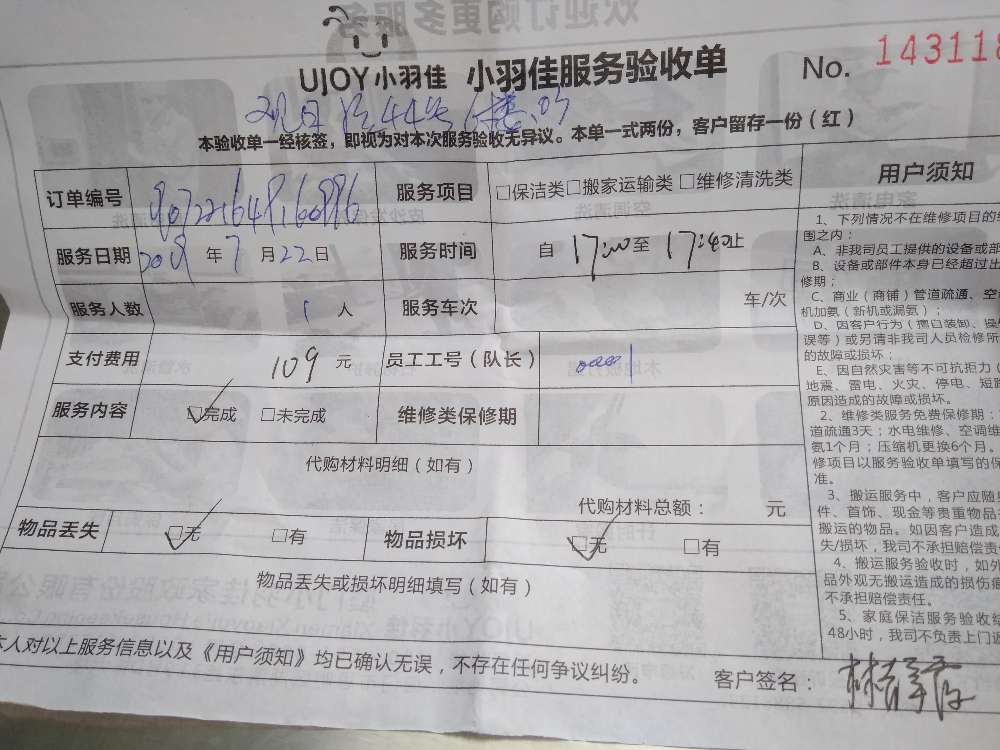 UJOY小羽佳 小羽佳服务验收单 No. 143118
本验收单一经核签，即视为对本次服务验收无异议。本单一式两份，客户留存一份（红）
订单编号 服务项目 □保洁类□搬家运输类 □维修清洗类
服务日期 2019 年 7 月 22 日 服务时间 自 17:00 至 17:40 止
服务人数 1 人 服务车次 车/次
支付费用 109 元 员工工号（队长） 00001
服务内容 □完成 □未完成 维修类保修期
代购材料明细（如有）
代购材料总额： 元
物品丢失 □无 □有 物品损坏 □无 □有
物品丢失或损坏明细填写（如有）
本人对以上服务信息以及《用户须知》均已确认无误，不存在任何争议纠纷。
客户签名：
用户须知
1、下列情况不在维修项目的
围之内：
A、非我司员工提供的设备或部
B、设备或部件本身已经超过出
修期；
C、商业（商铺）管道疏通、空
机加氨（新机或漏氨）；
D、因客户行为（擅自装卸、操
误等）或另请非我司人员检修所
的故障或损坏；
E、因自然灾害等不可抗拒力（
地震、雷电、火灾、停电、短路
原因造成的故障或损坏。
2、维修类服务免费保修期：
道疏通3天；水电维修、空调维
氨1个月；压缩机更换6个月。
修项目以服务验收单填写的保
准。
3、搬运服务中，客户应随
件、首饰、现金等贵重物品
搬运的物品。如因客户造成
失/损坏，我司不承担赔偿责
4、搬运服务验收时，如外
品外观无搬运造成的损伤痕
不承担赔偿责任。
5、家庭保洁服务验收结
48小时，我司不负责上门返